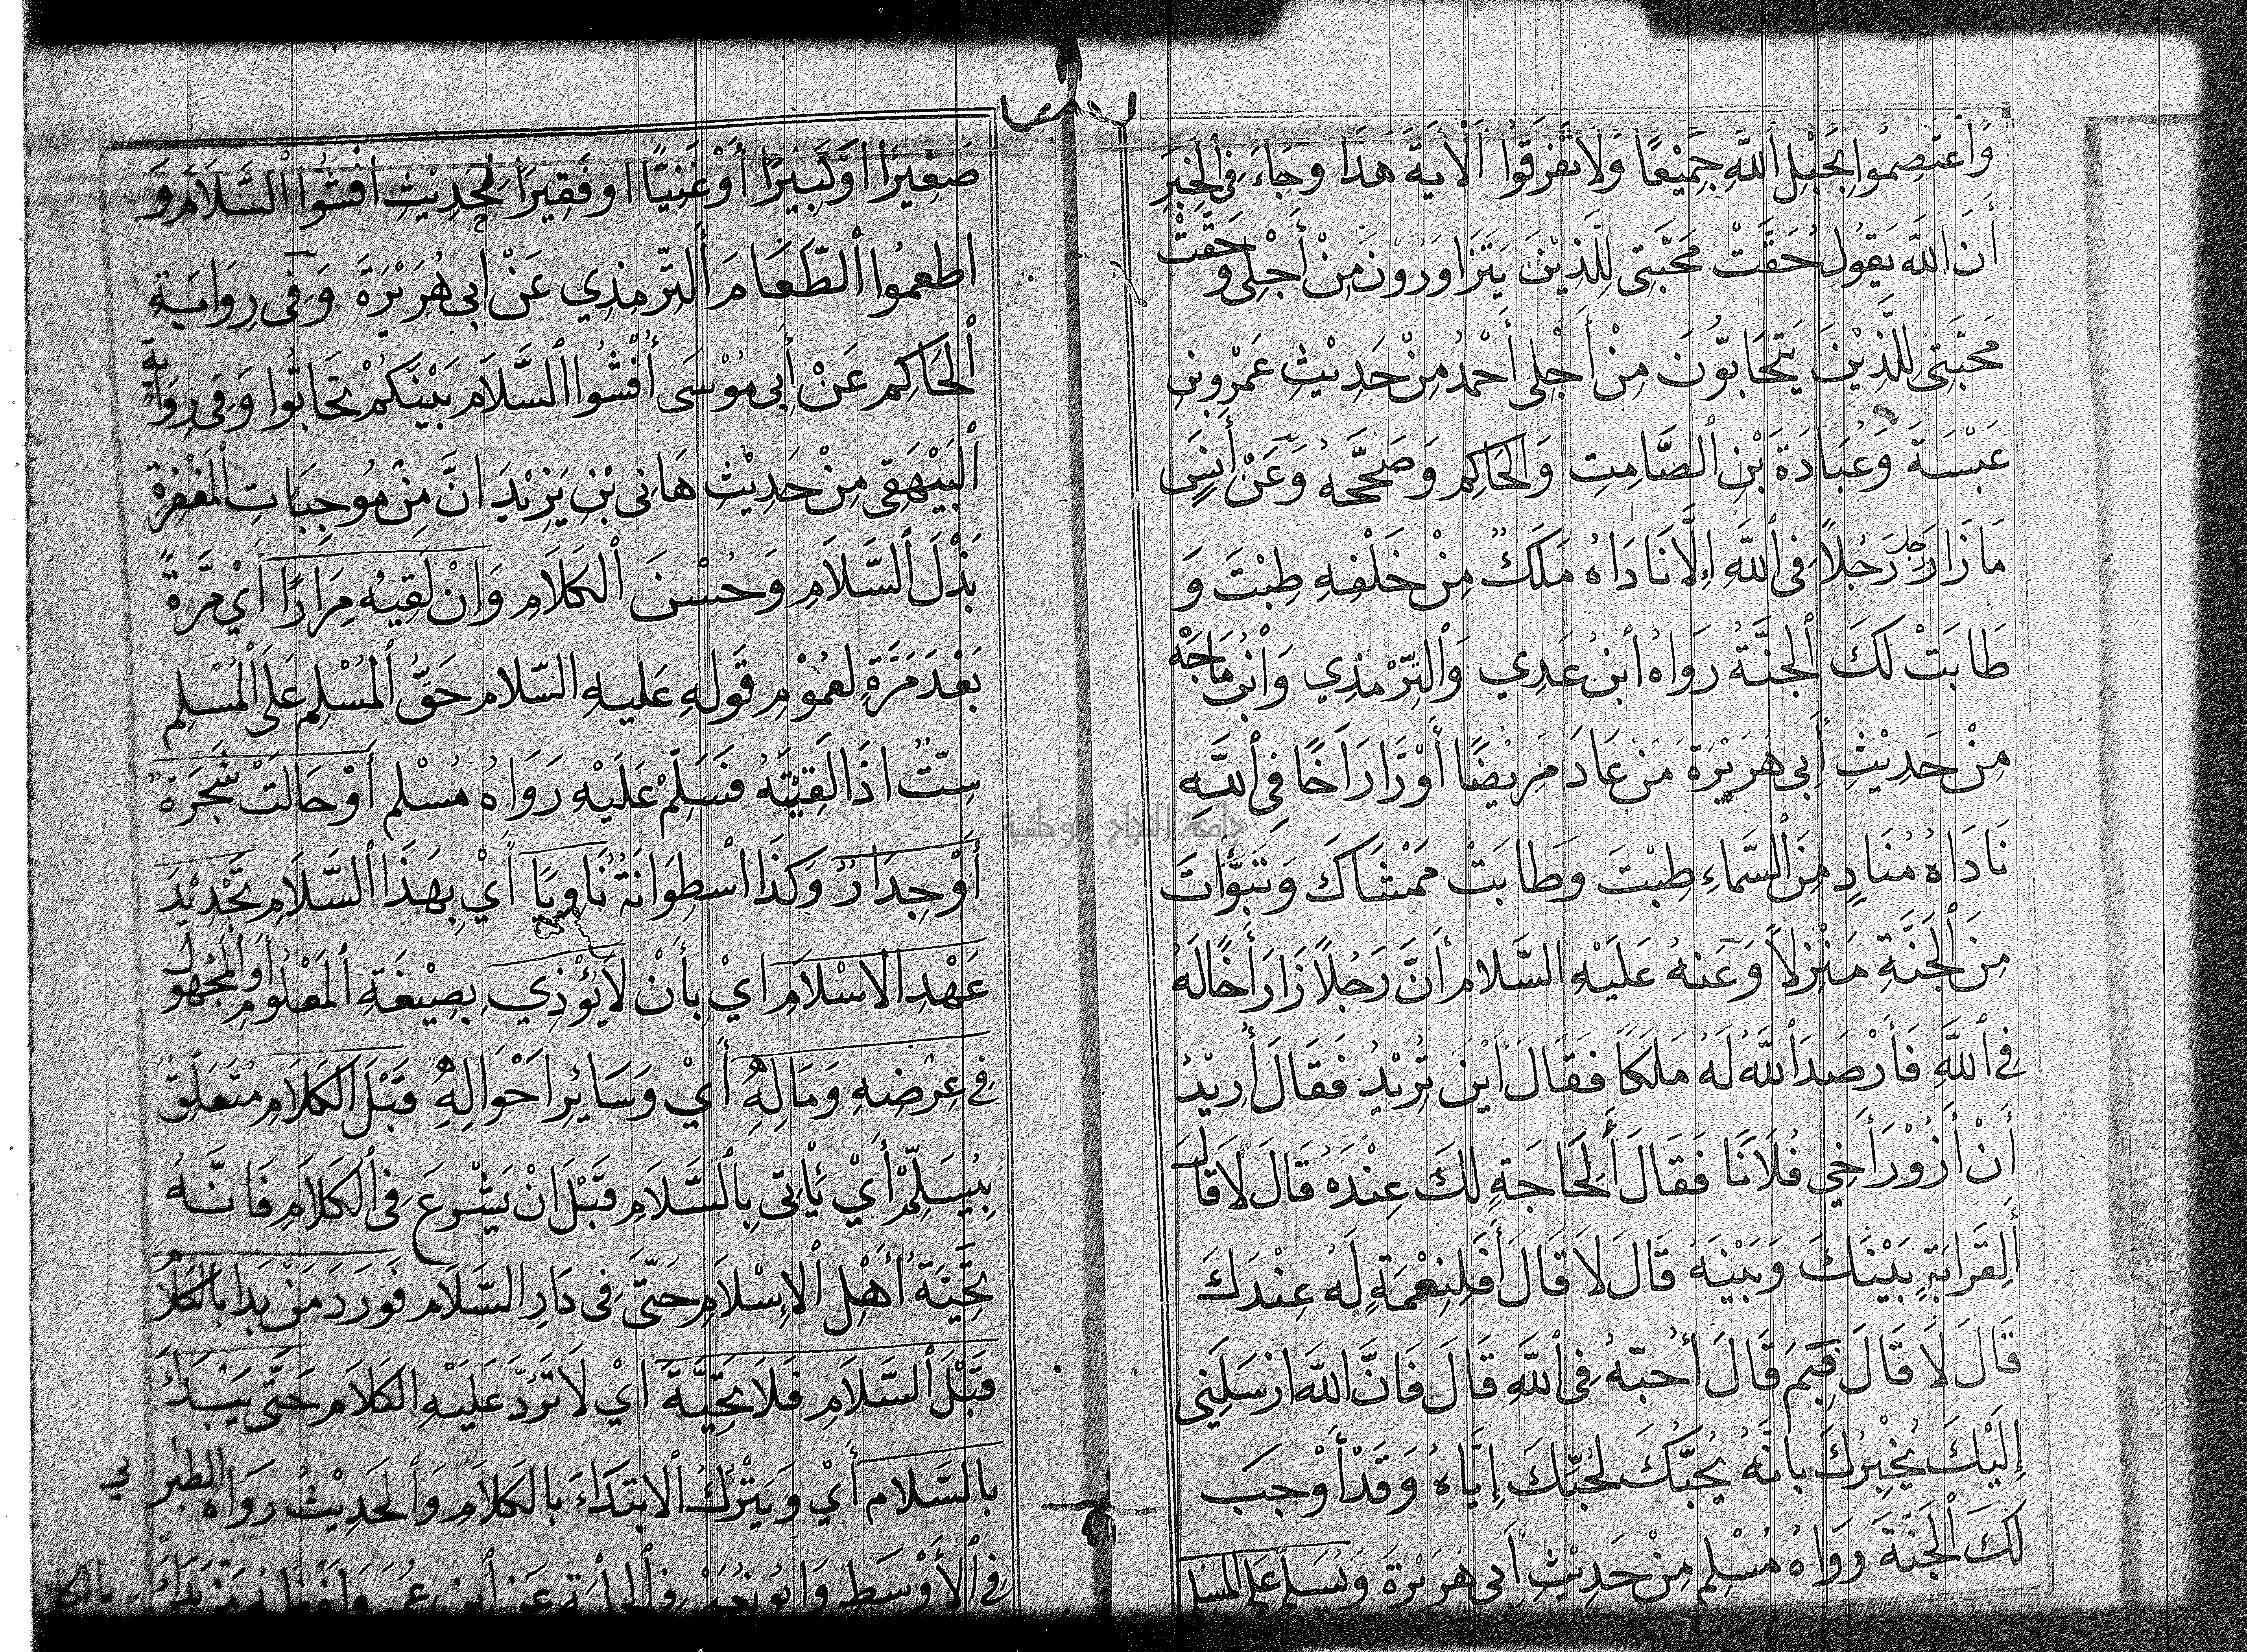 وَاعْتَصِمُوا بِحَبْلِ اللَّهِ جَمِيْعًا وَلَا تَفَرَّقُوا الْآيَةَ هَذَا وَجَاءَ فِي الْخَبَرِ
أَنَّ اللَّهَ يَقُولُ حَقَّتْ مَحَبَّتِي لِلَّذِيْنَ يَتَزَاوَرُوْنَ مِنْ أَجْلِي وَحَقَّتْ
مَحَبَّتِي لِلَّذِيْنَ يَتَحَابُّوْنَ مِنْ أَجْلِي أَحْمَدُ مِنْ حَدِيْثِ عَمْرِو بْنِ
عَبْسَةَ وَعُبَادَةَ بْنِ الصَّامِتِ وَالْحَاكِمِ وَصَحَّحَهُ وَعَنْ أَنَسٍ
مَا زَارَ رَجُلٌ رَجُلًا فِي اللَّهِ إِلَّا نَادَاهُ مَلَكٌ مِنْ خَلْفِهِ طِبْتَ وَ
طَابَتْ لَكَ الْجَنَّةُ رَوَاهُ ابْنُ عَدِي وَالتِّرْمِذِي وَابْنُ مَاجَهْ
مِنْ حَدِيْثِ أَبِي هُرَيْرَةَ مَنْ عَادَ مَرِيْضًا أَوْ زَارَ أَخًا فِي اللَّهِ
نَادَاهُ مُنَادٍ مِنَ السَّمَاءِ طِبْتَ وَطَابَتْ مَمْشَاكَ وَتَبَوَّأْتَ
مِنَ الْجَنَّةِ مَنْزِلًا وَعَنْهُ عَلَيْهِ السَّلَام أَنَّ رَجُلًا زَارَ أَخًا لَهُ
فِي اللَّهِ فَأَرْصَدَ اللَّهُ لَهُ مَلَكًا فَقَالَ أَيْنَ تُرِيْدُ فَقَالَ أُرِيْدُ
أَنْ أَزُوْرَ أَخِي فُلَانًا فَقَالَ أَلِحَاجَةٍ لَكَ عِنْدَهُ قَالَ لَا قَالَ
أَلِقَرَابَةٍ بَيْنَكَ وَبَيْنَهُ قَالَ لَا قَالَ أَفَلِنِعْمَةٍ لَهُ عِنْدَكَ
قَالَ لَا قَالَ فَبِمَ قَالَ أُحِبُّهُ فِي اللَّهِ قَالَ فَإِنَّ اللَّهَ أَرْسَلَنِي
إِلَيْكَ يُخْبِرُكَ بِأَنَّهُ يُحِبُّكَ لِحُبِّكَ إِيَّاهُ وَقَدْ أَوْجَبَ
لَكَ الْجَنَّةَ رَوَاهُ مُسْلِم مِنْ حَدِيْثِ أَبِي هُرَيْرَةَ وَيُسَلِّمُ عَلَى الْمُسْلِمِ
صَغِيْرًا أَوْ كَبِيْرًا أَوْ غَنِيًّا أَوْ فَقِيْرًا لِحَدِيْثِ أَفْشُوا السَّلَامَ وَ
أَطْعِمُوا الطَّعَامَ التِّرْمِذِي عَنْ أَبِي هُرَيْرَةَ وَفِي رِوَايَةِ
الْحَاكِمِ عَنْ أَبِي مُوْسَى أَفْشُوا السَّلَامَ بَيْنَكُمْ تَحَابُّوا وَفِي رِوَايَةِ
الْبَيْهَقِي مِنْ حَدِيْثِ هَانِي بْنِ يَزِيْدَ أَنَّ مِنْ مُوجِبَاتِ الْمَغْفِرَةِ
بَذْلَ السَّلَامِ وَحُسْنَ الْكَلَامِ وَإِنْ لَقِيَهُ مِرَارًا أَيْ مَرَّةً
بَعْدَ مَرَّةٍ لِعُمُوْمِ قَوْلِهِ عَلَيْهِ السَّلَام حَقُّ الْمُسْلِمِ عَلَى الْمُسْلِمِ
سِتٌّ إِذَا لَقِيْتَهُ فَسَلِّمْ عَلَيْهِ رَوَاهُ مُسْلِم أَوْ حَالَتْ شَجَرَةٌ
أَوْ جِدَارٌ وَكَذَا اسْطِوَانَةٌ نَاوِيًا أَيْ بِهَذَا السَّلَامِ تَجْدِيْدَ
عَهْدِ الْإِسْلَامِ أَيْ بِأَنْ لَا يُؤْذِي بِصِيْغَةِ الْمَعْلُوْمِ أَوِ الْمَجْهُوْلِ
فِي عِرْضِهِ وَمَالِهِ أَيْ وَسَائِرِ أَحْوَالِهِ قَبْلَ الْكَلَامِ مُتَعَلِّقٌ
بِيُسَلِّمُ أَيْ يَأْتِي بِالسَّلَامِ قَبْلَ أَنْ يَشْرَعَ فِي الْكَلَامِ فَإِنَّهُ
تَحِيَّةُ أَهْلِ الْإِسْلَامِ حَتَّى فِي دَارِ السَّلَام فَوَرَدَ مَنْ بَدَأَ بِالْكَلَامِ
قَبْلَ السَّلَامِ فَلَا تَحِيَّةَ أَيْ لَا تَرُدَّ عَلَيْهِ الْكَلَام حَتَّى يَبْدَأَ
بِالسَّلَام أَيْ وَيَتْرُكُ الِابْتِدَاءَ بِالْكَلَامِ وَالْحَدِيْثُ رَوَاهُ الطَّبَرَانِي
فِي الْأَوْسَطِ وَأَبُو نُعَيْمٍ فِي الْحِلْيَةِ عَنِ ابْنِ عُمَرَ وَلَفْظُهُ مَنْ بَدَأَ بالكلام
جامعة النجاح الوطنية